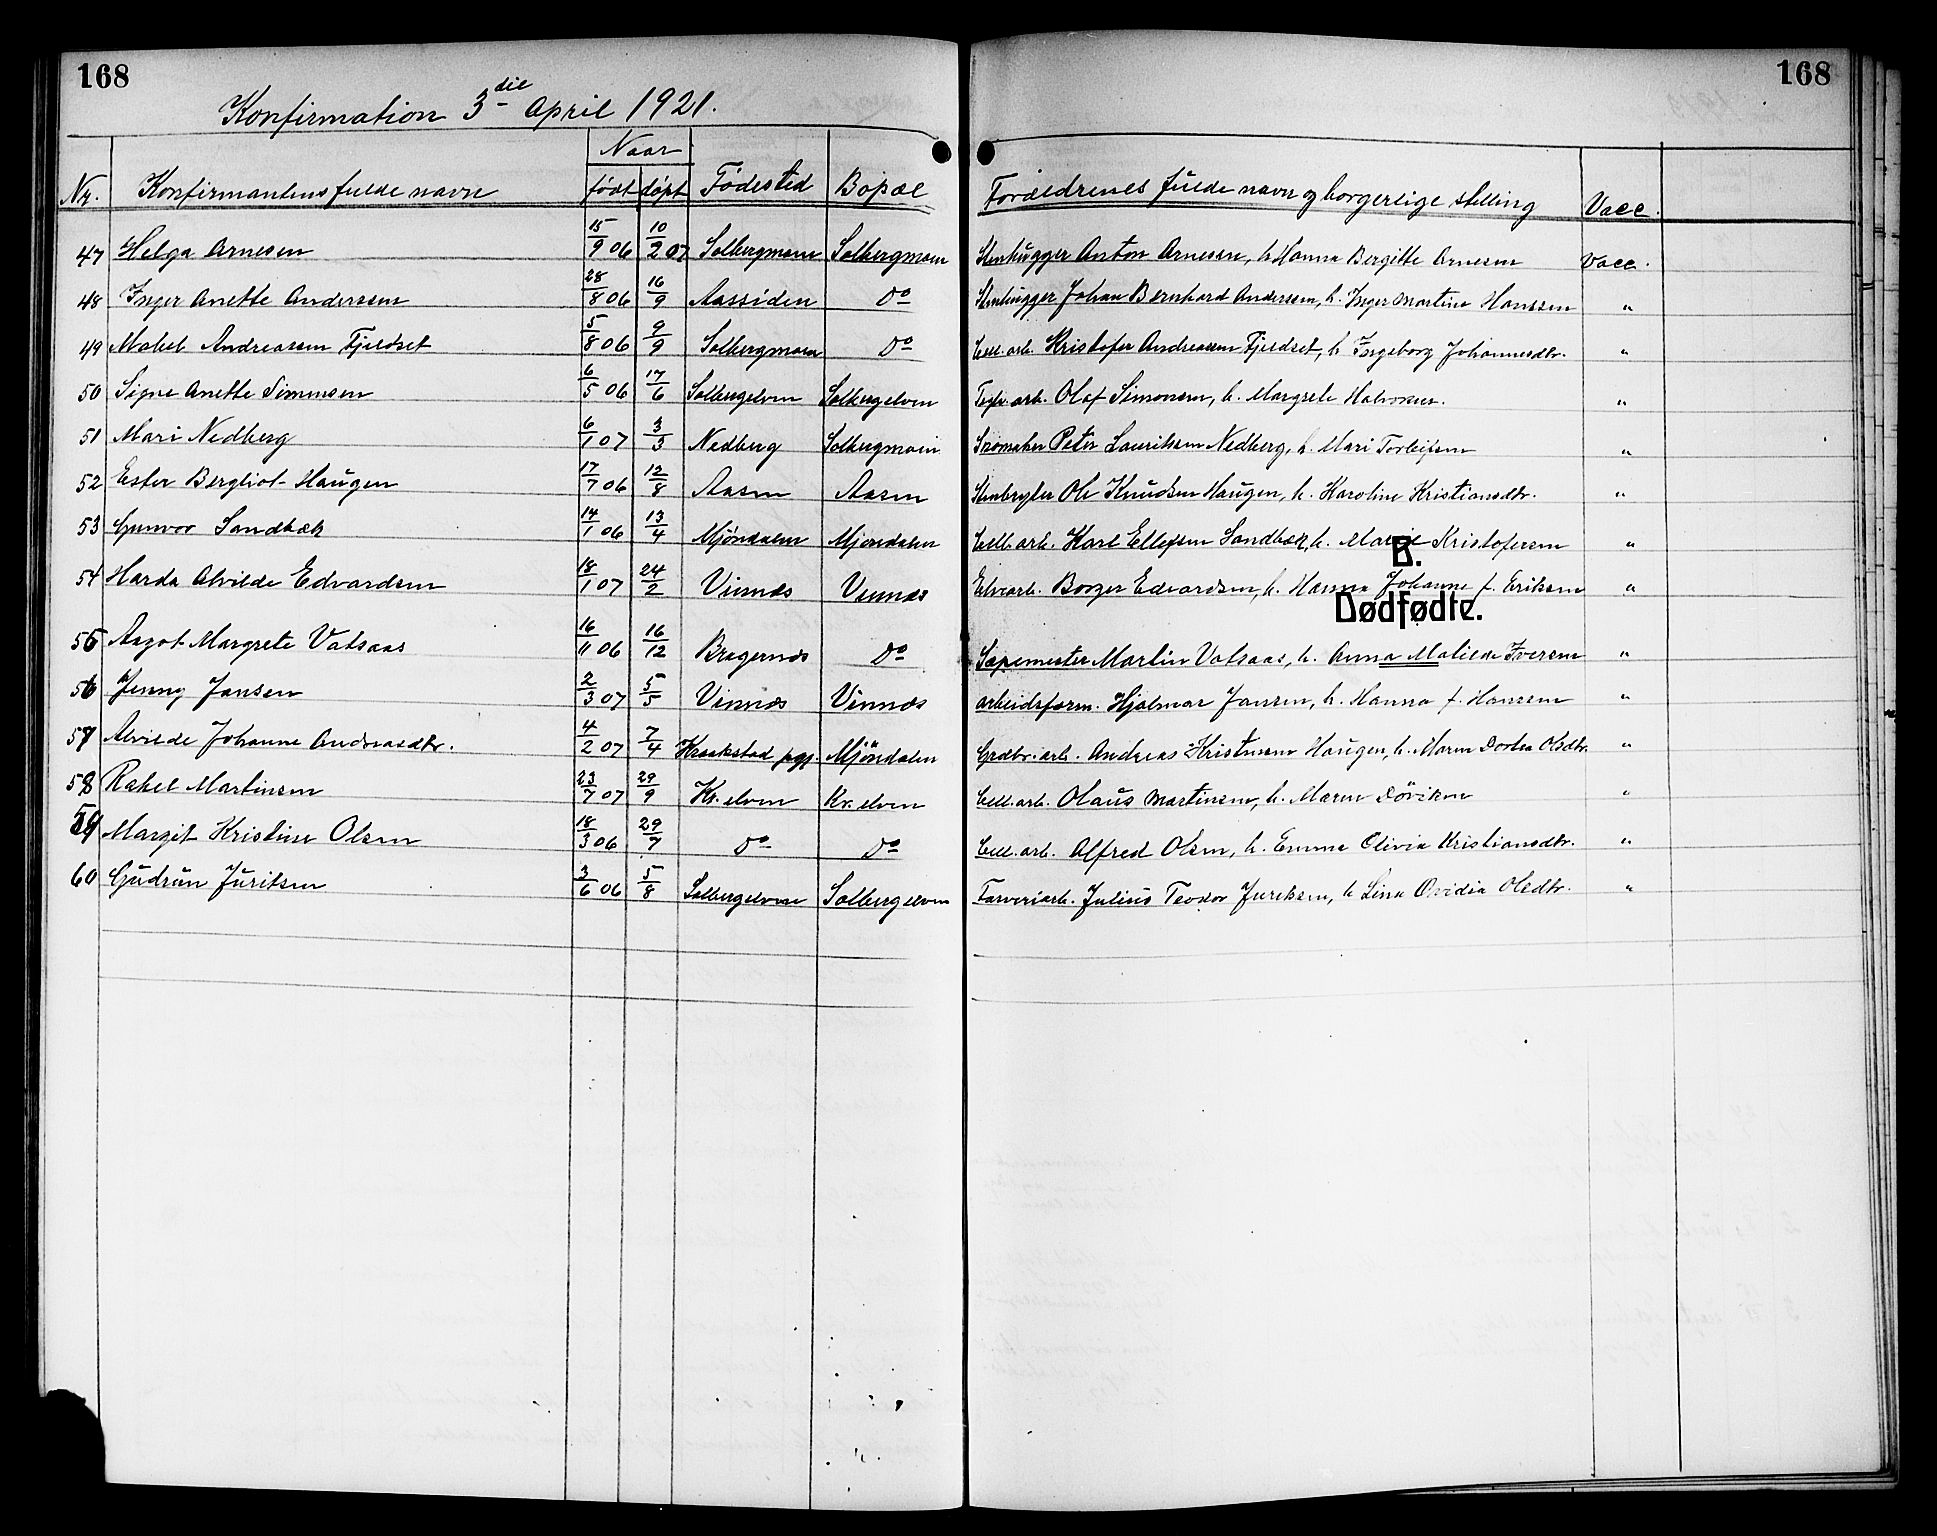 168
168
Konfirmation 3die April 1921.
Nr. Konfirmantens fulde navn Naar født døpt Fødested Bopæl Forældrenes fulde navn og borgerlige stilling Vacc.
47 Helga Arnesen 15/9 06 10/2 07 Solbergmoen Solbergmoen Stenhugger Anton Arnesen, h. Hanna Bergitte Arnesen Vacc.
48 Inger Anette Andersen 28/8 06 16/9 Aassiden Do Stenhugger Johan Bernhard Andersen, h. Inger Martine Hanssen "
49 Mabel Andreassen Fjeldset 5/8 06 9/9 Solbergmoen Do Cell. arb. Kristofer Andreassen Fjeldset, h. Ingeborg Johannesdtr. "
50 Signe Anette Simensen 6/5 06 17/6 Solbergelven Solbergelven arb. Olaf Simonsen, h. Margrete Halvorsen. "
51 Mari Nedberg 6/1 07 3/3 Nedberg Solbergmoen Skomaker Peter Lauritsen Nedberg, h. Mari Torleifsen "
52 Ester Bergliot Haugen 17/7 06 12/8 Aasen Aasen Stenbryter Ole Knudsen Haugen, h. Karoline Kristiansdtr. "
53 Gunvor Sandbæk 14/1 06 13/4 Mjöndalen Mjøndalen Cell. arb. Karl Ellefsen Sandbæk, h. Marie Kristofersen "
B.
54 Harda Alvilde Edvardsen 18/1 07 24/2 Vinnes Vinnes Elvearb. Borger Edvardsen, h. Hanna Johanne f. Eriksen "
Dødfødte.
55 Aagot Margrete Vatsaas 16/11 06 16/12 Bragernes Do Sapemester Martin Vatsaas, h. Anna Matilde Iversen "
56 Jenny Jansen 2/3 07 5/5 Vinnes Vinnes arbeidsform. Hjalmar Jansen, h. Hanna f. Hansen "
57 Alvilde Johanne Andreasdtr. 4/2 07 7/4 Kraakstad pgj. Mjöndalen Gradbr. arb. Andreas Kristensen Haugen, h. Maren Dortea Olsdtr. "
58 Rakel Martinsen 23/7 07 29/9 Kr. elven Kr. elven Cell. arb. Olaus Martinsen, h. Maren Döviken "
59 Margit Kristine Olsen 18/3 06 29/7 Do Do Cell. arb. Alfred Olsen, h. Emma Olivia Kristiansdtr. "
60 Gudrun Juriksen 3/6 06 5/8 Solbergelven Solbergelven Farveriarb. Julius Teodor Juriksen, h. Lina Ovidia Olsdtr. "